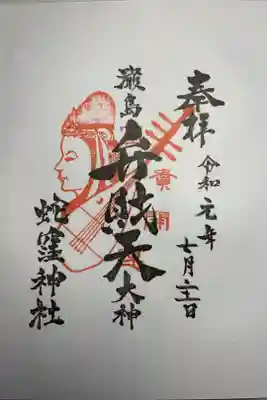 奉拝
令和元年
七月二十二日
厳島
弁財天
大神
蛇窪神社